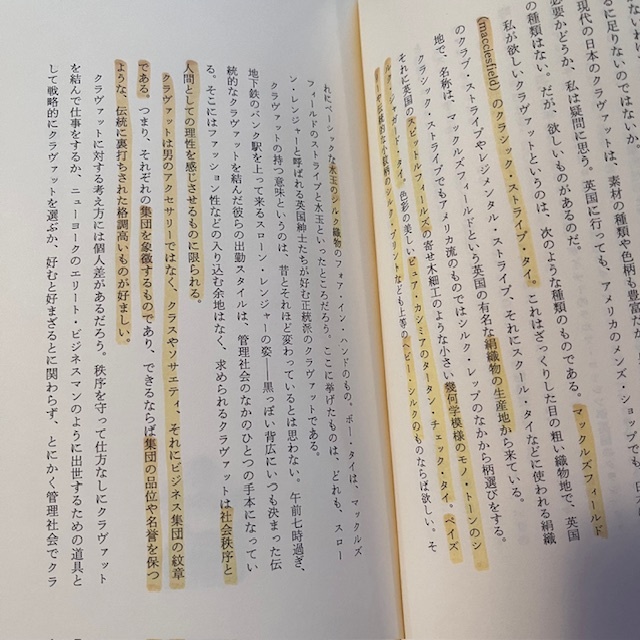 ないわれ
に足りないのではない
現代の日本のクラヴァットは、素材の種類や色柄も豊富だ
必要かどうか、私は疑問に思う。英国に行っても、アメリカのメンズ・ショップでも、
の種類はない。だが、欲しいものがあるのだ。
私が欲しいクラヴァットというのは、次のような種類のものである。マックルズフィールド
(macclesfield) のクラシック・ストライプ・タイ。これはざっくりした目の粗い織物地で、英国
のクラブ・ストライプやレジメンタル・ストライプ、それにスクール・タイなどに使われる絹織
地で、名称は、マックルズフィールドという英国の有名な絹織物の生産地から来ている。
クラシック・ストライプでもアメリカ流のものではシルク・レップのなかから柄選びをする。
それに英国のスピットルフィールズの寄せ木細工のような小さい幾何学模様のモノ・トーンのシ
ルク・ジャガード・タイ。色彩の美しいピュア・カシミアのタータン・チェック・タイ。ペイズ
リーや伝統的な小紋柄のシルク・プリントなども上等のヘビー・シルクのものならば欲しい。そ
れにベーシックな水玉のシルク織物のフォア・イン・ハンドのもの。ボー・タイは、マックルズ
フィールドのストライプと水玉といったところだろう。ここに挙げたものは、どれも、スロー
ン・レンジャーと呼ばれる英国紳士たちが好む正統派のクラヴァットである。
クラヴァットの持つ意味というのは、昔とそれほど変わっているとは思わない。午前七時過ぎ、
地下鉄のバンク駅を上って来るスローン・レンジャーの姿——黒っぽい背広にいつも決まった伝
統的なクラヴァットを結んだ彼らの出勤スタイルは、管理社会のなかのひとつの手本になってい
る。そこにはファッション性などの入り込む余地はなく、求められるクラヴァットは社会秩序と
人間としての理性を感じさせるものに限られる。
クラヴァットは男のアクセサリーではなく、クラスやソサエティ、それにビジネス集団の紋章
である。つまり、それぞれの集団を象徴するものであり、できるならば集団の品位や名誉を保つ
ような、伝統に裏打ちされた格調高いものが好ましい。
クラヴァットに対する考え方には個人差があるだろう。秩序を守って仕方なしにクラヴァット
を結んで仕事をするか、ニューヨークのエリート・ビジネスマンのように出世するための道具と
して戦略的にクラヴァットを選ぶか、好むと好まざるとに関わらず、とにかく管理社会でクラ